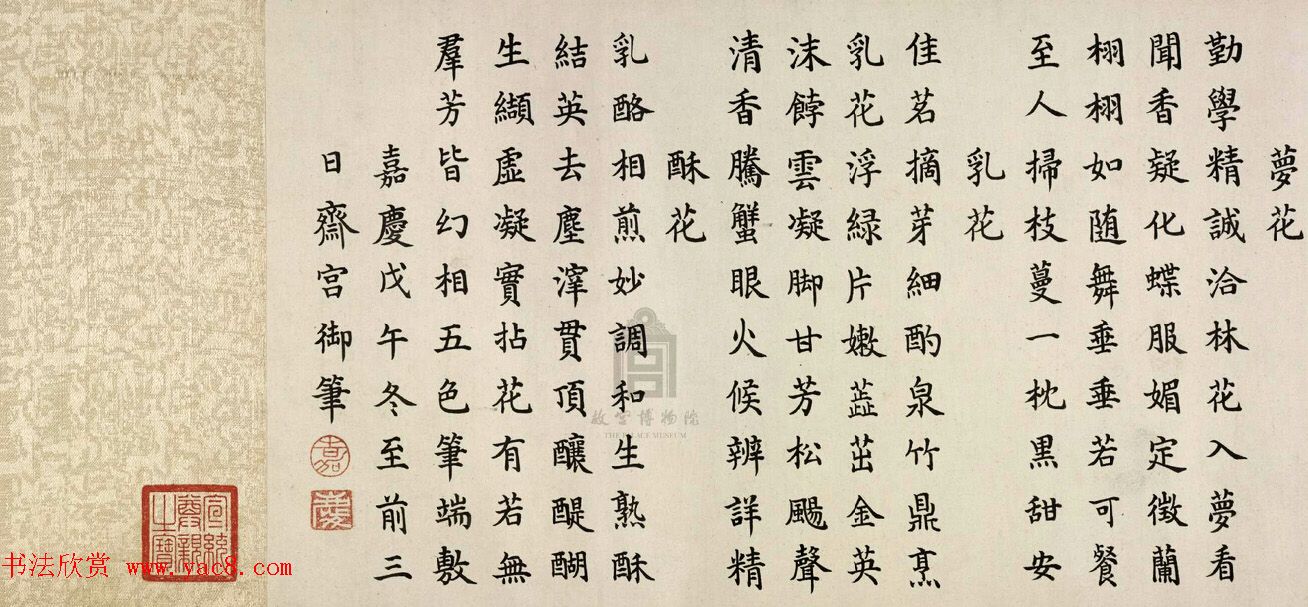 夢花
勤學精誠洽林花入夢看
聞香疑化蝶服媚定徵蘭
栩栩如随舞垂垂若可餐
至人掃枝蔓一枕黑甜安
乳花
佳茗摘芽細酌泉竹鼎烹
乳花浮緑片嫩蕋茁金英
沫餑雲凝脚甘芳松颺聲
清香騰蟹眼火候辨詳精
酥花
乳酪相煎妙調和生熟酥
結英去塵滓貫頂釀醍醐
生纈虛凝實拈花有若無
羣芳皆幻相五色筆端敷
嘉慶戊午冬至前三
日齋宮御筆
嘉
宣統尊親之寶
故宫博物院
THE PALACE MUSEUM
书法欣赏 www.yac8.com